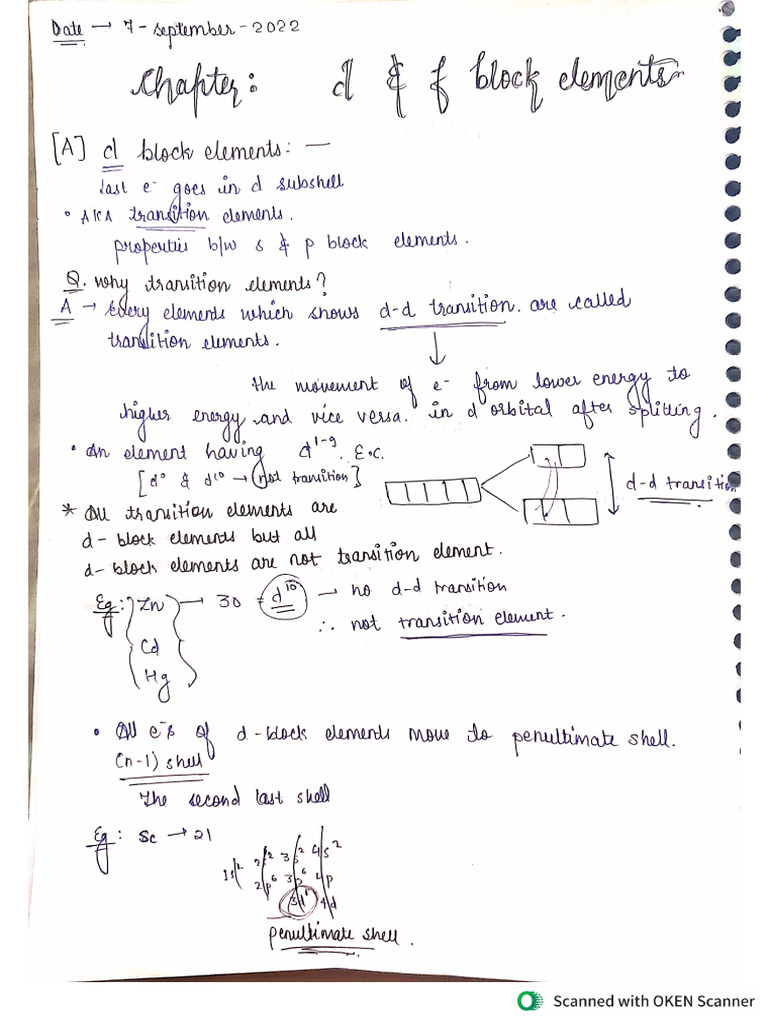 Date → 7 - september - 2022
Chapter: d & f block elements
[A] d block elements: —
last e⁻ goes in d subshell
• AKA transition elements.
properties b/w s & p block elements.
Q. why transition elements?
A → Every elements which shows d-d transition. are called
transition elements.
↓
the movement of e⁻ from lower energy to
higher energy and vice versa. in d orbital after splitting.
• An element having d¹⁻⁹. E.C.
[d⁰ & d¹⁰ → not transition]
d-d transition
* All transition elements are
d- block elements but all
d- block elements are not transition element.
Eg: Zn → 30 = d¹⁰ → no d-d transition
∴ not transition element.
Cd
Hg
• All e⁻s of d-block elements move to penultimate shell.
(n-1) shell
The second last shell
Eg: Sc → 21
1s² 2s² 3s² 4s²
2p⁶ 3p⁶ 4p
3d¹ 4d
penultimate shell.
Scanned with OKEN Scanner